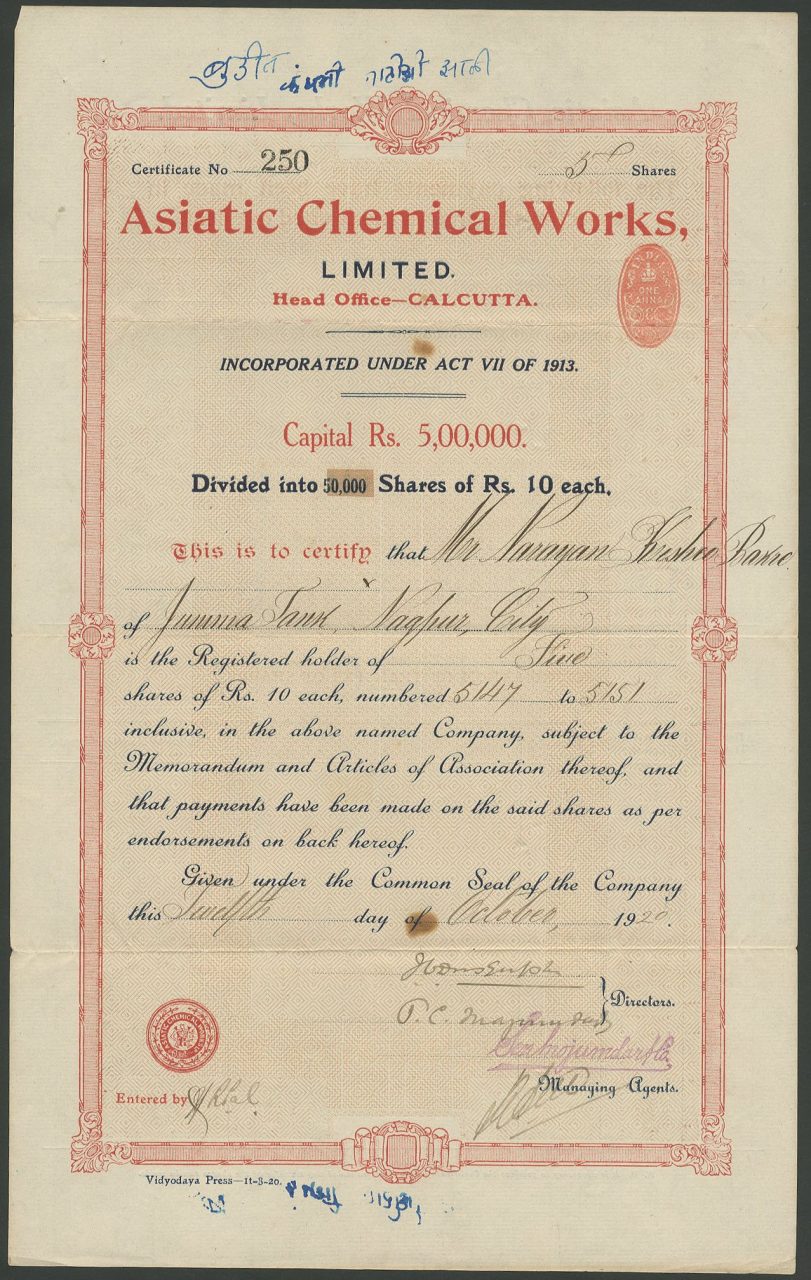 Certificate No 250
5 Shares
Asiatic Chemical Works,
LIMITED.
Head Office—CALCUTTA.
INDIA
ONE
ANNA
INCORPORATED UNDER ACT VII OF 1913.
Capital Rs. 5,00,000.
Divided into 50,000 Shares of Rs. 10 each.
This is to certify that Mr Narayan
of Jumma Tank, Nagpur, City
is the Registered holder of Five
shares of Rs. 10 each, numbered 5147 to 5151
inclusive, in the above named Company, subject to the
Memorandum and Articles of Association thereof, and
that payments have been made on the said shares as per
endorsements on back hereof.
Given under the Common Seal of the Company
this Twelfth day of October, 1920.
Directors.
P. C.
Managing Agents.
Entered by
Vidyodaya Press—11-3-20.